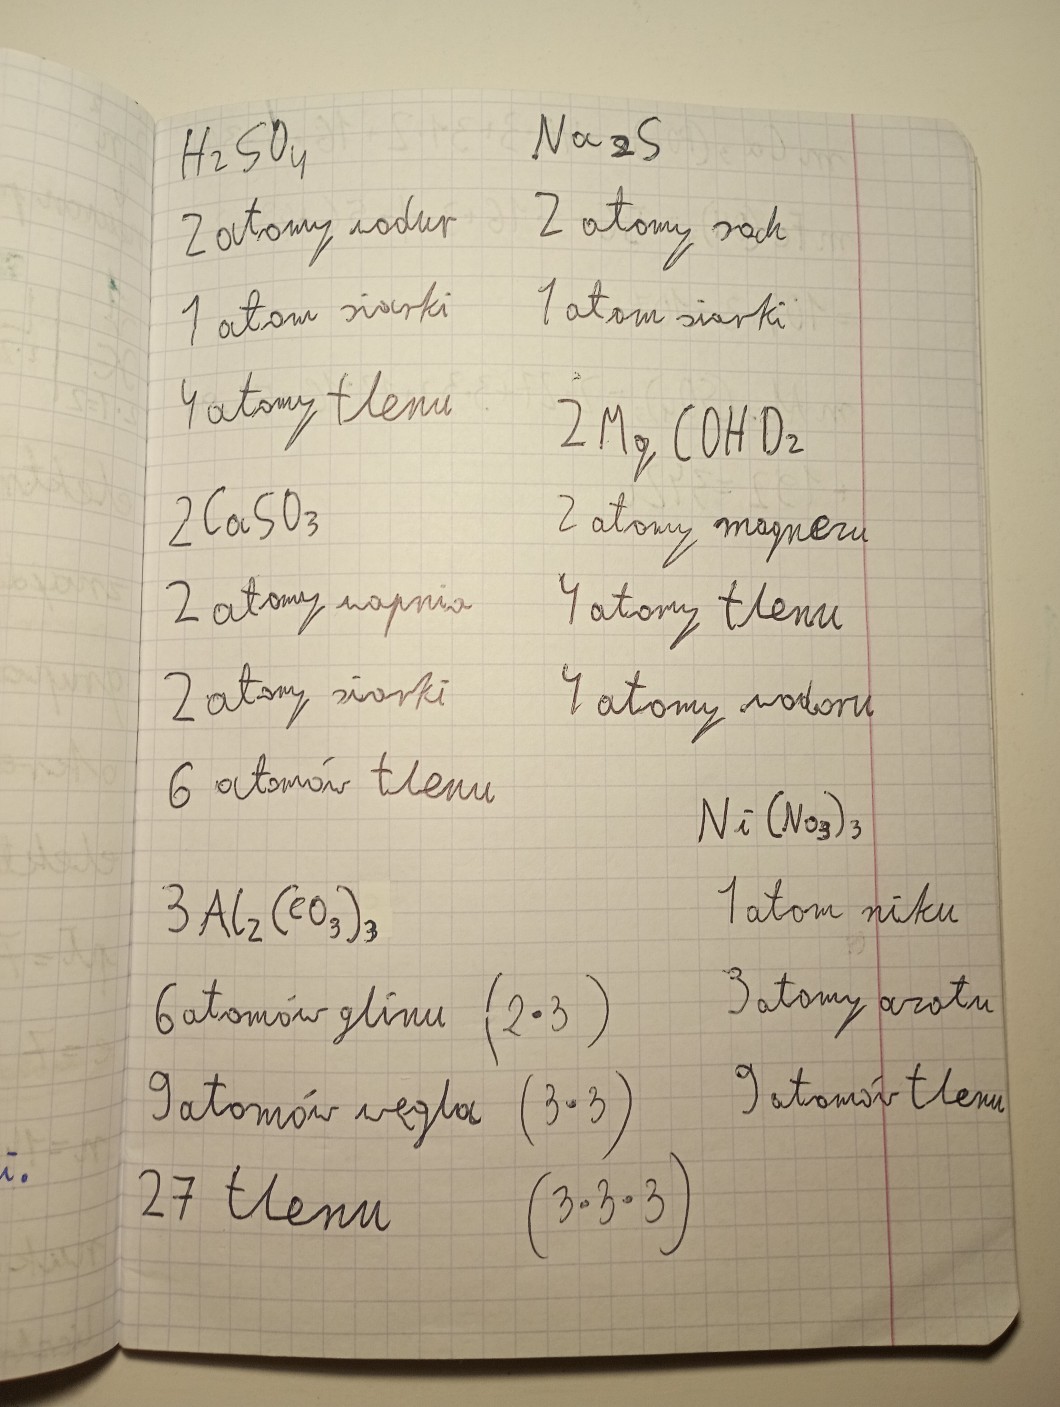 H₂SO₄
2 atomy wodur
1 atom siarki
4 atomy tlenu
2CaSO₃
2 atomy wapnia
2 atomy siarki
6 atomów tlenu
3Al₂(CO₃)₃
6 atomów glinu (2·3)
9 atomów węgla (3·3)
27 tlenu (3·3·3)
Na₂S
2 atomy sodu
1 atom siarki
2Mg(OH)₂
2 atomy magnezu
4 atomy tlenu
4 atomy wodoru
Ni(No₃)₃
1 atom niku
3 atomy azotu
9 atomów tlenu